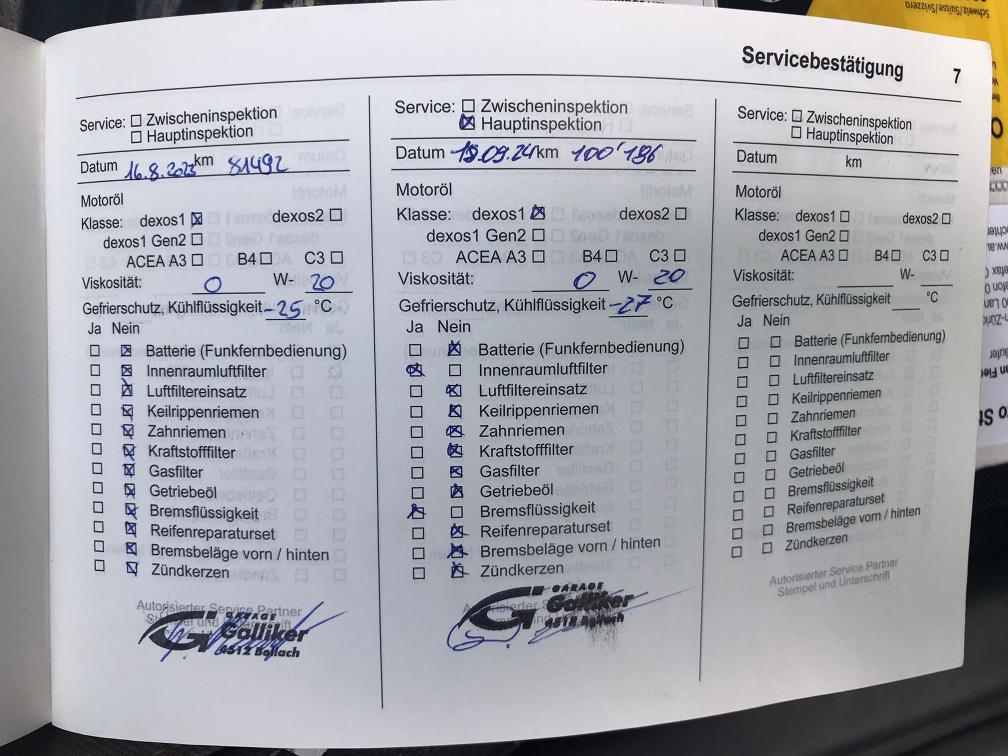 Servicebestätigung 7
Service: ☐ Zwischeninspektion
☐ Hauptinspektion
Datum 16.8.2023 km 81492
Motoröl
Klasse: dexos1 ☒ dexos2 ☐
dexos1 Gen2 ☐
ACEA A3 ☐ B4 ☐ C3 ☐
Viskosität: 0 W- 20
Gefrierschutz, Kühlflüssigkeit -25 °C
Ja Nein
☐ ☒ Batterie (Funkfernbedienung)
☐ ☒ Innenraumluftfilter
☐ ☒ Luftfiltereinsatz
☐ ☒ Keilrippenriemen
☐ ☒ Zahnriemen
☐ ☒ Kraftstofffilter
☐ ☒ Gasfilter
☐ ☒ Getriebeöl
☐ ☒ Bremsflüssigkeit
☐ ☒ Reifenreparaturset
☐ ☒ Bremsbeläge vorn / hinten
☐ ☒ Zündkerzen
Autorisierter Service Partner
GARAGE
Galliker
4512 Bellach
Service: ☐ Zwischeninspektion
☒ Hauptinspektion
Datum 19.09.24 km 100'186
Motoröl
Klasse: dexos1 ☒ dexos2 ☐
dexos1 Gen2 ☐
ACEA A3 ☐ B4 ☐ C3 ☐
Viskosität: 0 W- 20
Gefrierschutz, Kühlflüssigkeit -27 °C
Ja Nein
☐ ☒ Batterie (Funkfernbedienung)
☒ ☐ Innenraumluftfilter
☐ ☒ Luftfiltereinsatz
☐ ☒ Keilrippenriemen
☐ ☒ Zahnriemen
☐ ☒ Kraftstofffilter
☐ ☒ Gasfilter
☐ ☒ Getriebeöl
☒ ☐ Bremsflüssigkeit
☐ ☒ Reifenreparaturset
☐ ☒ Bremsbeläge vorn / hinten
☐ ☒ Zündkerzen
GARAGE
Galliker
4512 Bellach
Service: ☐ Zwischeninspektion
☐ Hauptinspektion
Datum km
Motoröl
Klasse: dexos1 ☐ dexos2 ☐
dexos1 Gen2 ☐
ACEA A3 ☐ B4 ☐ C3 ☐
Viskosität: W-
Gefrierschutz, Kühlflüssigkeit °C
Ja Nein
☐ ☐ Batterie (Funkfernbedienung)
☐ ☐ Innenraumluftfilter
☐ ☐ Luftfiltereinsatz
☐ ☐ Keilrippenriemen
☐ ☐ Zahnriemen
☐ ☐ Kraftstofffilter
☐ ☐ Gasfilter
☐ ☐ Getriebeöl
☐ ☐ Bremsflüssigkeit
☐ ☐ Reifenreparaturset
☐ ☐ Bremsbeläge vorn / hinten
☐ ☐ Zündkerzen
Autorisierter Service Partner
Stempel und Unterschrift
Schweiz/Suisse/Svizzera